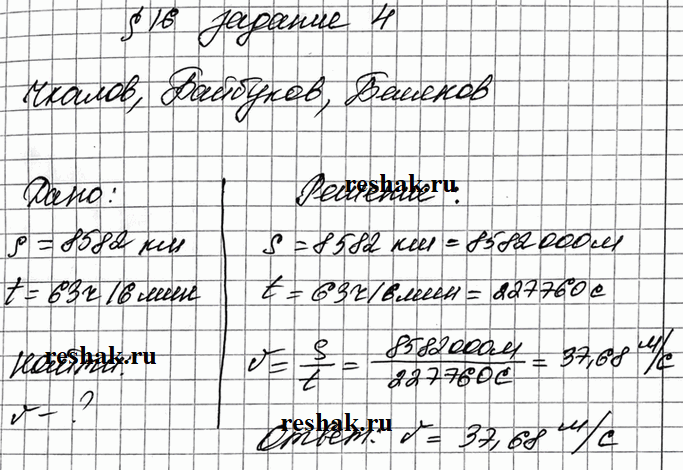 § 16 задание 4
Чкалов, Байдуков, Беляков
Дано:
s = 8582 км
t = 63ч 16 мин
найти:
v - ?
Решение:
s = 8582 км = 8582000м
t = 63ч 16 мин = 227760с
v = s/t = 8582000м/227760с = 37,68 м/с
Ответ: v = 37,68 м/с
reshak.ru
reshak.ru
reshak.ru